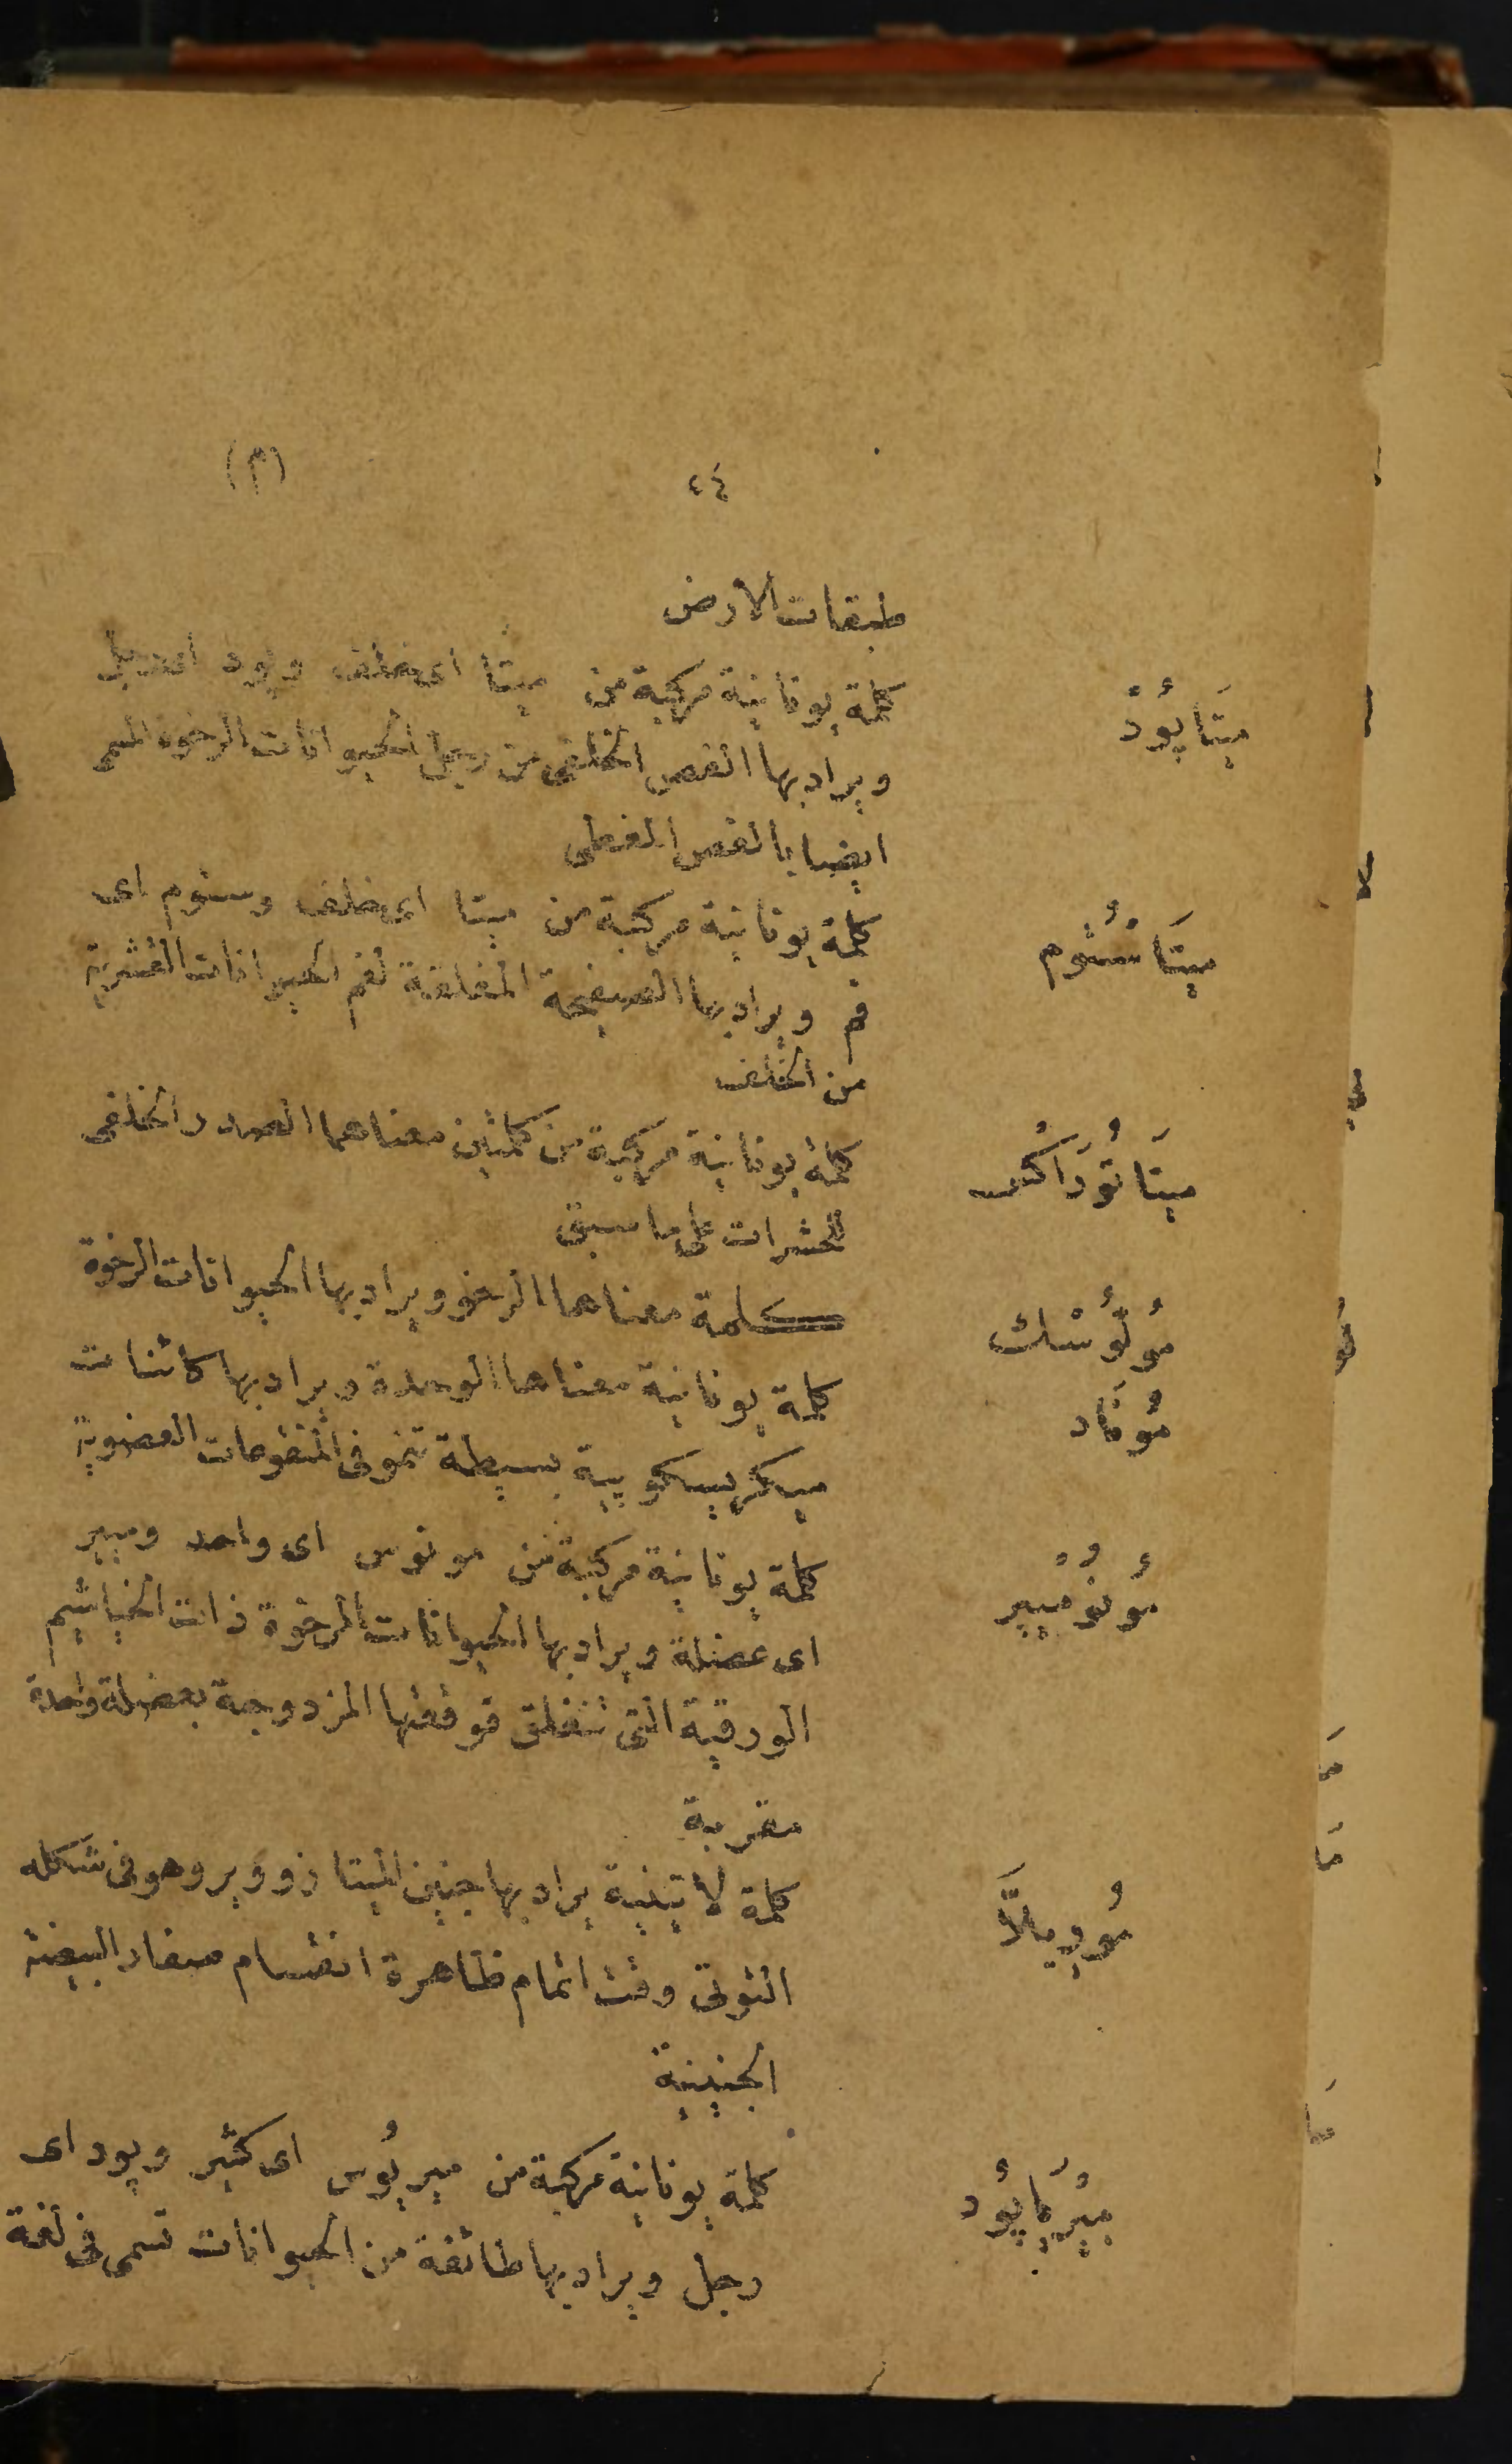 ٢٤ (م)
طبقات الارض
مِيتَاپُودْ كلمة يونانية مركبة من ميتا اى خلف وپود اى رجل
ويراد بها الفص الخلفى من رجل الحيوانات الرخوة المسمى
ايضا بالفص
مِيتَاسْتُوم كلمة يونانية مركبة من ميتا اى خلف وستوم اى
فم ويراد بها الصفيحة المغلقة لفم الحيوانات القشرية
من الخلف
مِيتَاتُورَاكْس كلمة يونانية مركبة من كلمتين معناهما الصدر الخلفى
للحشرات على ما سبق
مُولُوسْك كلمة معناها الرخو ويراد بها الحيوانات الرخوة
مُونَاد كلمة يونانية معناها الوحدة ويراد بها كائنات
ميكرسكوپية بسيطة تنمو فى المنقوعات العضوية
مُونُومْيير كلمة يونانية مركبة من مونوس اى واحد وميير
اى عضلة ويراد بها الحيوانات الرخوة ذات الخياشيم
الورقية التى تنغلق قوقعتها المزدوجة بعضلة واحدة
مقربة
مُورِيلاَّ كلمة لاتينية يراد بها جنين الميتازووير وهو فى شكله
التوتى وقت اتمام ظاهرة انقسام صفار البيضة
الجنينية
مِيْرِيَاپُود كلمة يونانية مركبة من ميريُوس اى كثير وپود اى
رجل ويراد بها طائفة من الحيوانات تسمى فى لغة